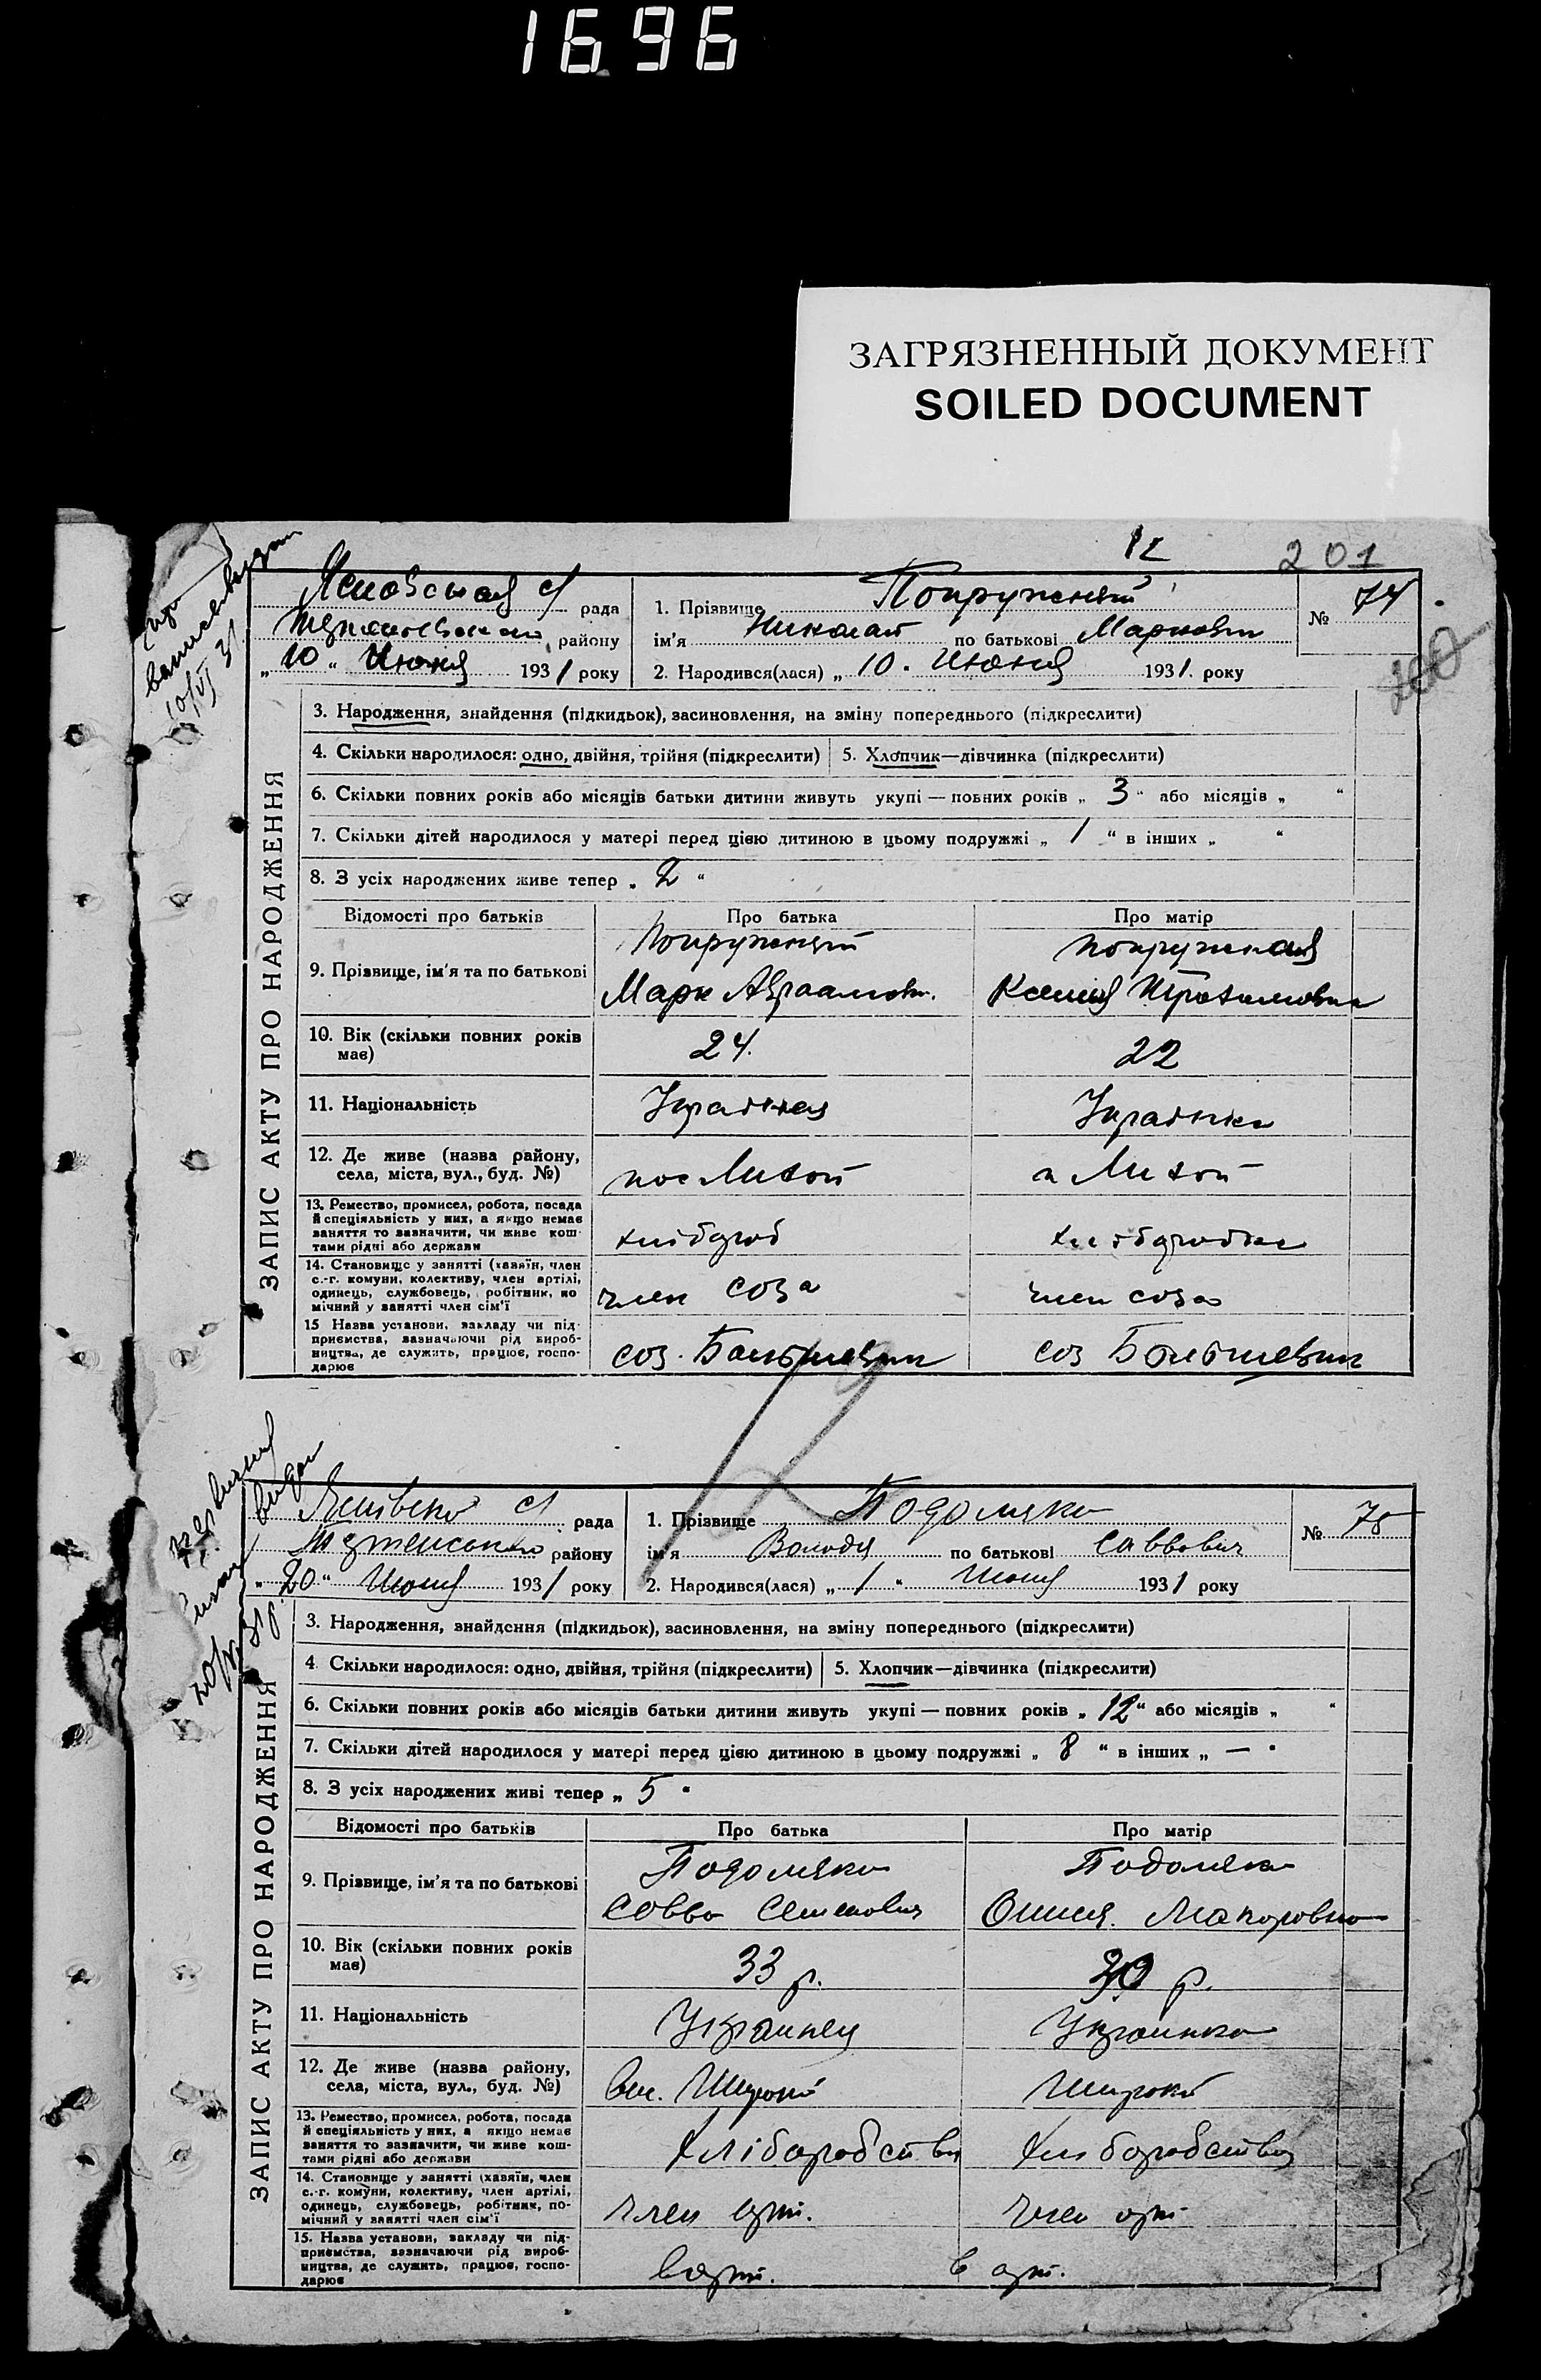 1696
ЗАГРЯЗНЕННЫЙ ДОКУМЕНТ
SOILED DOCUMENT
12
201
200
ЗАПИС АКТУ ПРО НАРОДЖЕННЯ
рада
району
„ 10 “ Июня 1931 року
1. Прізвище Попружний
ім'я Николай по батькові Маркович
2. Народився(лася) „ 10. Июня 1931. року
№ 74
10/VI 31
3. Народження, знайдення (підкидьок), засиновлення, на зміну попереднього (підкреслити)
4. Скільки народилося: одно, двійня, трійня (підкреслити) 5. Хлопчик—дівчинка (підкреслити)
6. Скільки повних років або місяців батьки дитини живуть укупі — повних років „ 3 “ або місяців „ “
7. Скільки дітей народилося у матері перед цією дитиною в цьому подружжі „ 1 “ в інших „ “
8. З усіх народжених живе тепер „ 2 “
Відомості про батьків Про батька Про матір
9. Прізвище, ім'я та по батькові
Попружний Попружная
Марк Авраамов. Ксения Трохимовна
10. Вік (скільки повних років
має)
24. 22
11. Національність Украинка
12. Де живе (назва району,
села, міста, вул., буд. №)
пос Лихой п Лихой
13. Ремество, промисел, робота, посада
й спеціяльність у них, а якщо немає
заняття то зазначити, чи живе кош-
тами рідні або держави
хлібороб
14. Становище у занятті (хазяїн, член
с.-г. комуни, колективу, член артілі,
одинець, службовець, робітник, по
мічний у занятті член сім'ї
член соза член соза
15 Назва установи, закладу чи під-
приємства, зазначаючи рід вироб-
ництва, де служить, працює, госпо-
дарює
соз. Большевик соз Большевик
ЗАПИС АКТУ ПРО НАРОДЖЕННЯ
рада
району
„ 20 “ Июня 1931 року
1. Прізвище Подоляка
ім'я Володя по батькові Саввович
2. Народився(лася) „ 1 “ Июня 1931 року
№ 75
3. Народження, знайдення (підкидьок), засиновлення, на зміну попереднього (підкреслити)
4 Скільки народилося: одно, двійня, трійня (підкреслити) 5. Хлопчик—дівчинка (підкреслити)
6. Скільки повних років або місяців батьки дитини живуть укупі — повних років „ 12 “ або місяців „ “
7. Скільки дітей народилося у матері перед цією дитиною в цьому подружжі „ 8 “ в інших „ —
8. З усіх народжених живі тепер „ 5 “
Відомості про батьків Про батька Про матір
9. Прізвище, ім'я та по батькові
Подоляка Подоляка
Савва Семенович Макаровна
10. Вік (скільки повних років
має)
33 р. 30 р.
11. Національність Украинец Украинка
12. Де живе (назва району,
села, міста, вул., буд. №)
13. Ремество, промисел, робота, посада
й спеціяльність у них, а якщо немає
заняття то зазначити, чи живе кош-
тами рідні або держави
хліборобство хліборобство
14. Становище у занятті (хазяїн, член
с.-г. комуни, колективу, член артілі,
одинець, службовець, робітник, по-
мічний у занятті член сім'ї
член арт. член арт
15. Назва установи, закладу чи під-
приємства, зазначаючи рід вироб-
ництва, де служить, працює, госпо-
дарює
в арт. в арт.